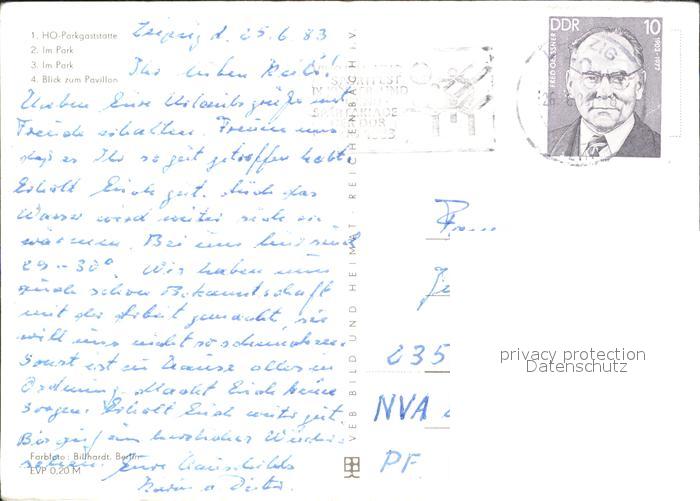 1. HO-Parkgaststätte
2. Im Park
3. Im Park
4. Blick zum Pavillon
Leipzig d. 25.6.83
Ihr lieben
Haben Eure Urlaubsgrüße mit
Freude erhalten. Freuen uns
daß es Ihr so gut getroffen habt.
Erholt Euch gut. Auch das
Wasser wird weiter sich er
wärmen. Bei uns sind
29-30°. Wir haben uns
auch schon Bekanntschaft
mit der Arbeit gemacht, sie
will uns nicht so schmecken.
Sonst ist zu Hause alles in
Ordnung. Macht Euch keine
Sorgen. Erholt Euch weiter gut.
Bis auf ein herzliches Wieder-
sehen. Eure
Karin u. Dieter.
Farbfoto: Billhardt, Berlin
EVP 0,20 M
VEB BILD UND HEIMAT · REICHENBACH i.V.
DDR 10
1903-1977
SPORTFEST
DDR
LEIPZIG
235
NVA
PF
privacy protection
Datenschutz